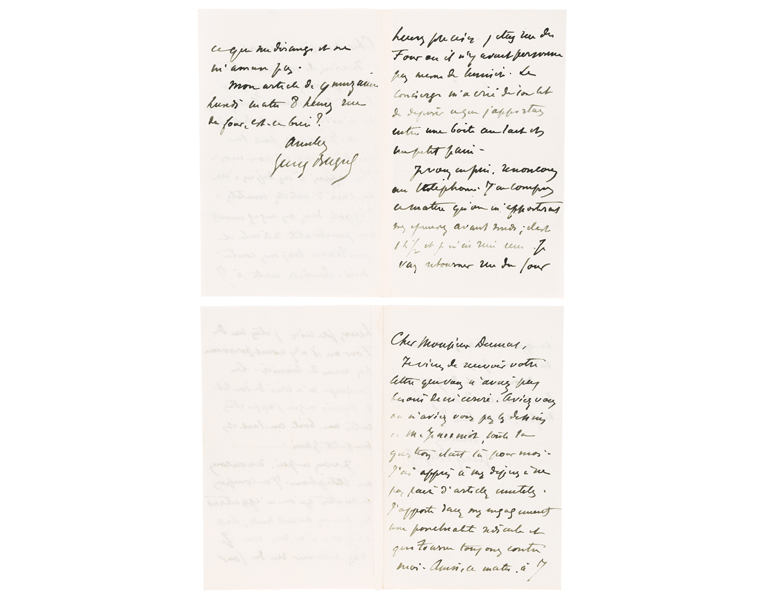 Cher Monsieur Dumas,
Je viens de recevoir votre
lettre que vous n'aviez pas
besoin de m'écrire. Aviez vous
ou n'aviez vous pas les dessins
de M. toute la
question était là pour moi.
J'ai appris à mes dépens à ne
pas faire d'articles inutiles.
J'apporte dans mes engagements
une ponctualité ridicule et
qui tourne toujours contre
moi. Ainsi, ce matin, à 7
heures précises j'étais rue du
Four où il n'y avait personne
pas même de lumière. Le
concierge m'a crié de son lit
de déposer ce que j'apportais
entre une boîte au lait et
un petit pain -
Je vous en prie, renoncez
au téléphone. J'ai compris
ce matin qu'on m'apporterait
mes épreuves avant midi; il est
1 h ½ et je n'ai rien eu. Je
vais retourner rue du Four
ce qui me dérange et ne
m'amuse pas.
Mon article de quinzaine
lundi matin 8 heures rue
du Four, est-ce bien?